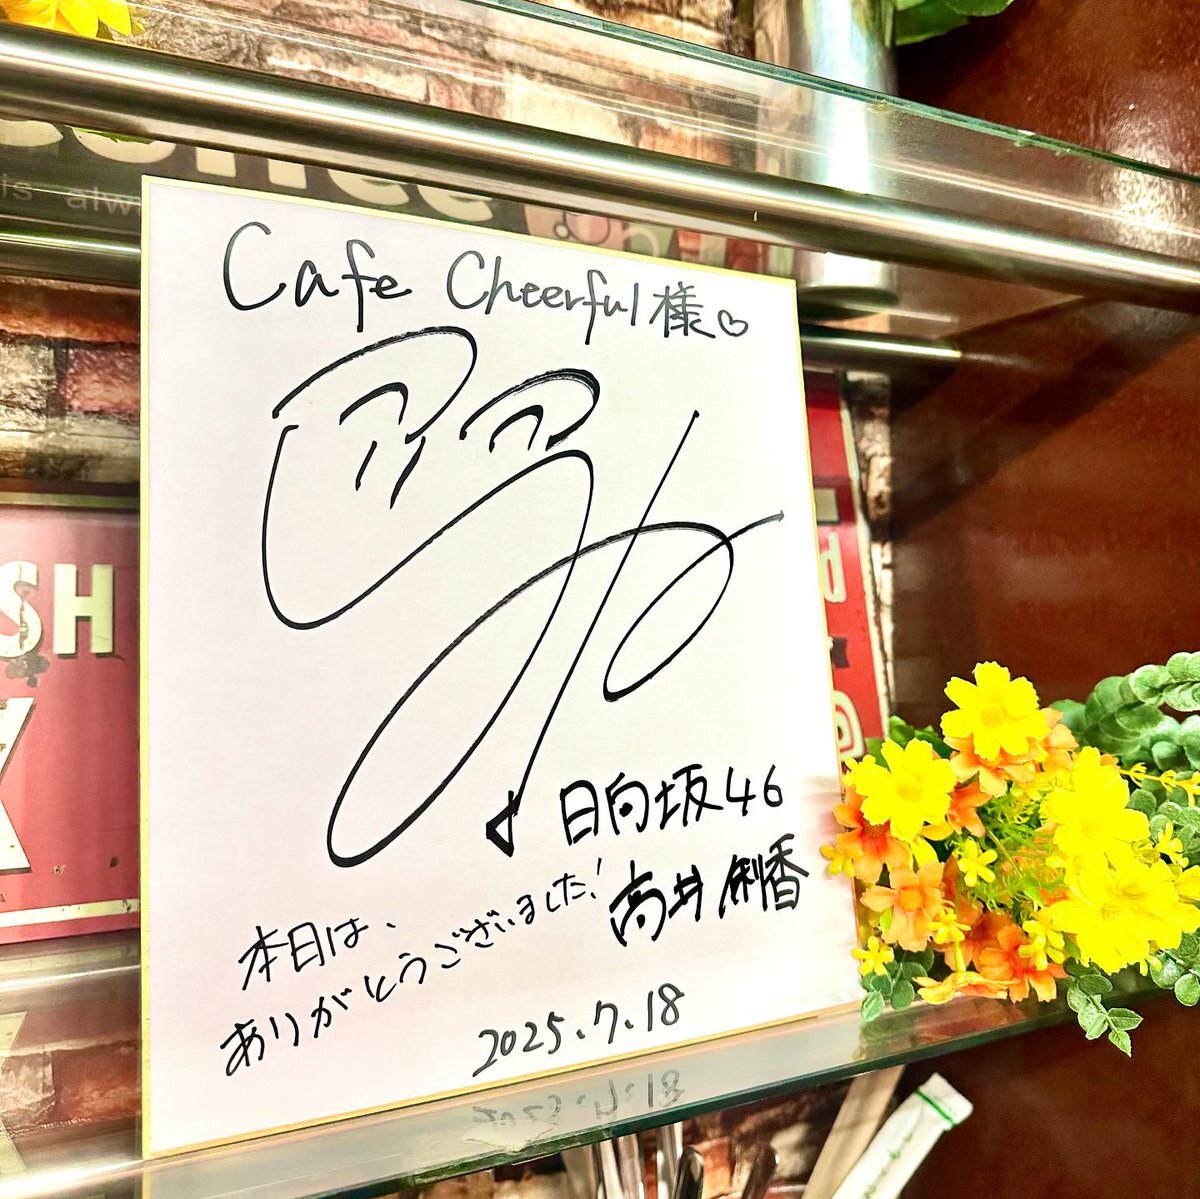 Coffee
is alwa
Cafe Cheerful様♡
日向坂46
髙井俐香
本日は、
ありがとうございました!
2025.7.18
SH